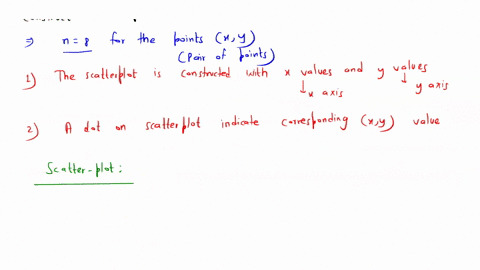 ⇒ n = 8 for the points (x, y)
(Pair of points)
1) The scatterplot is constructed with x values and y values
↓ x axis ↓ y axis
2) A dot on scatterplot indicate corresponding (x,y) value
Scatter-plot: